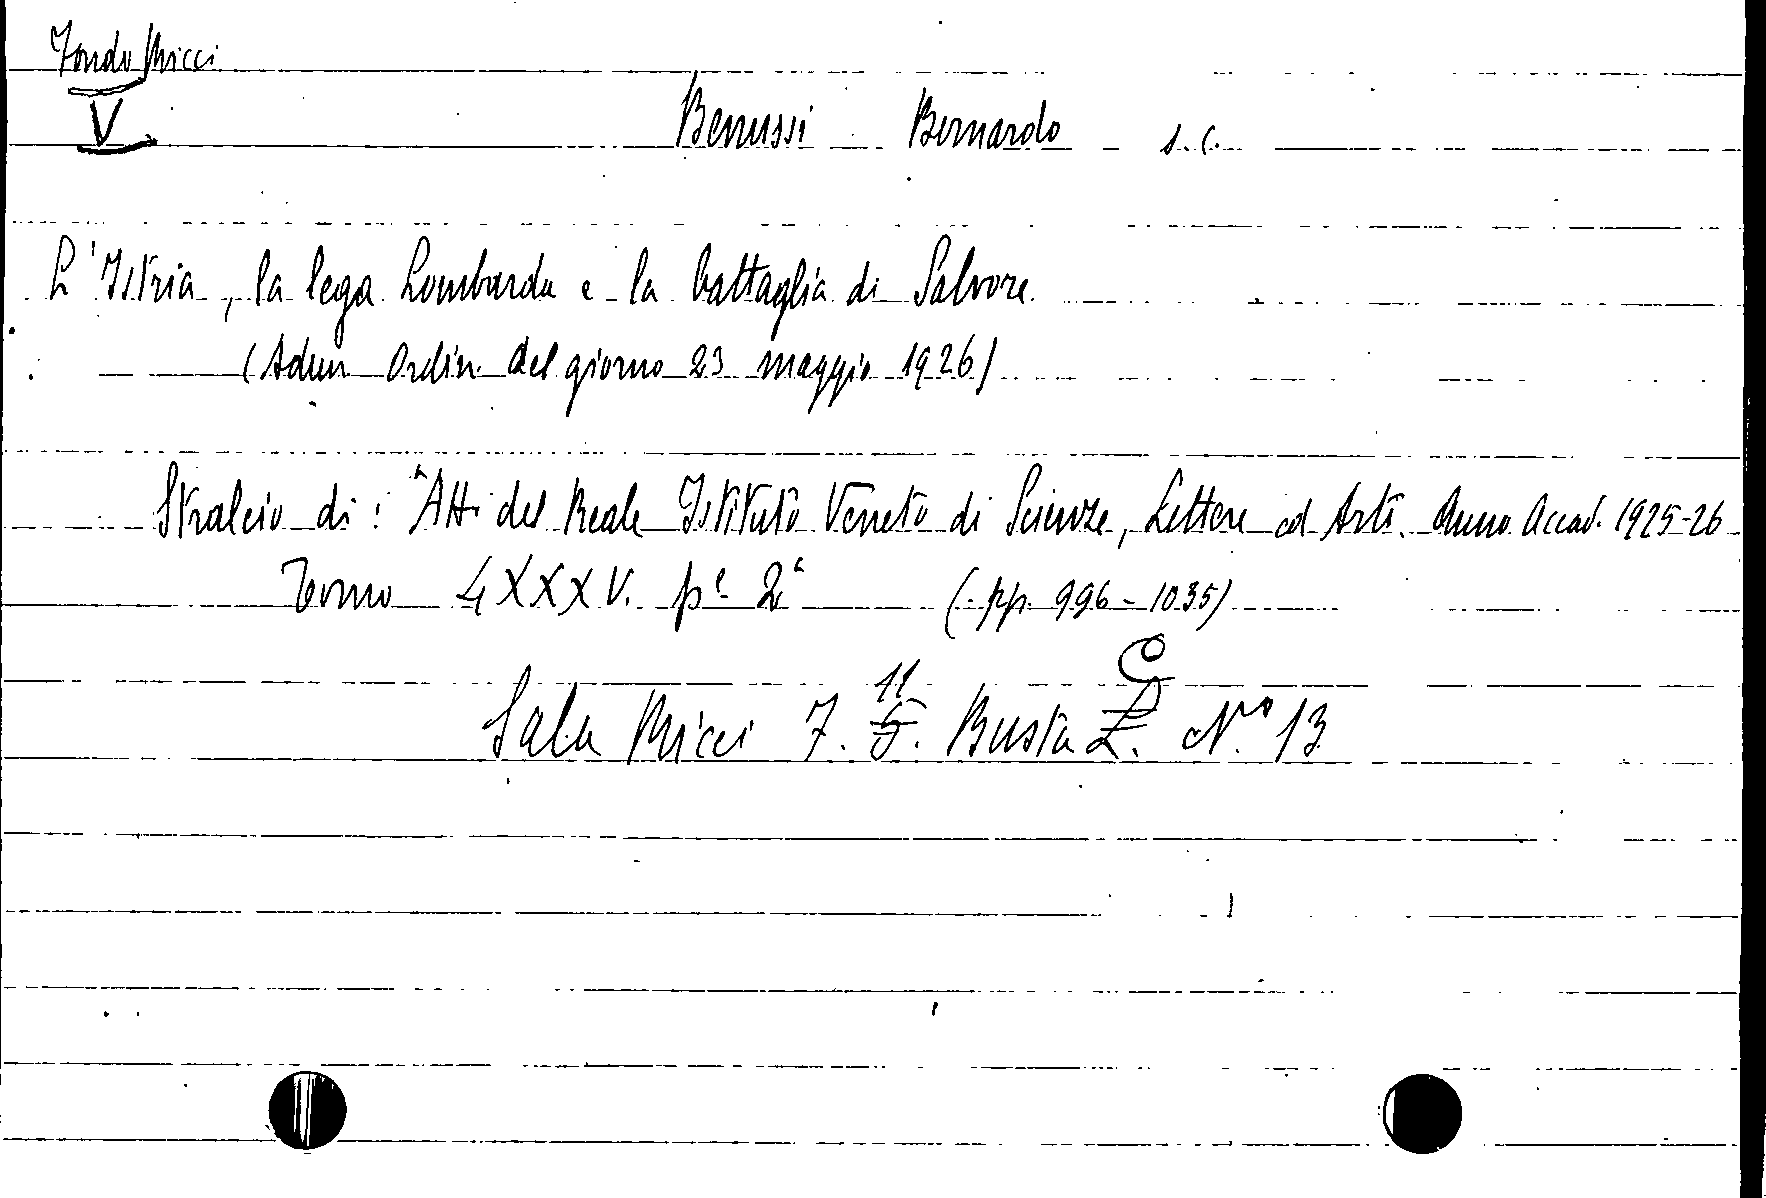 Fondo Ricci
V
Benussi Bernardo s.c.
L'Istria, la lega Lombarda e la battaglia di Salvore
(Adun Ordin. del giorno 23 maggio 1926)
Stralcio di: "Atti del Reale Istituto Veneto di Scienze, Lettere ed Arti. Anno Accad. 1925-26
Tomo LXXXV. pe 2a (pp. 996-1035)
11 C
Sala Ricci 7. 5. Busta L. N.° 13